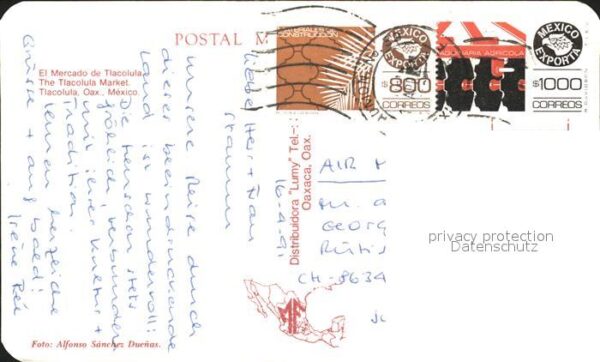 POSTAL M
El Mercado de Tlacolula.
The Tlacolula Market.
Tlacolula, Oax., México.
MATERIALES DE
CONSTRUCCION
MEXICO
EXPORTA
$800
CORREOS
MAQUINARIA AGRICOLA
MEXICO
EXPORTA
$1000
CORREOS
16-9-91
Liebe Herr + Frau
unsere Reise durch
dieses beeindruckende
Land ist wundervoll:
Die Menschen stets
fröhlich, verbunden
mit ihrer Kultur +
Tradition.
Ihnen herzliche
Grüsse + auf bald!
Irène
Distribuidora "Lumy" Tel.-
Oaxaca, Oax.
AIR M
GEORG
RÜTIS
CH-8634
MF
Foto: Alfonso Sánchez Dueñas.
privacy protection
Datenschutz